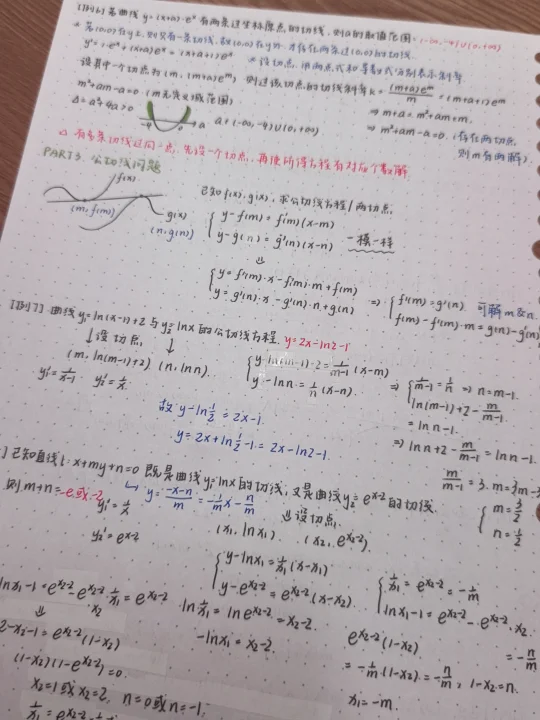 [例6] 若曲线 y=(x+a)·eˣ 有两条过坐标原点的切线, 则a的取值范围: (-∞,-4)∪(0,+∞)
若(0,0)在y上, 则只有一条切线, 故(0,0)在y外, 才存在两条过(0,0)的切线
y'=1·eˣ+(x+a)eˣ=(x+a+1)eˣ ※设切点, 用两点式和导数式分别表示斜率
设其中一个切点为(m,(m+a)eᵐ) 则过该切点的切线斜率k=(m+a)eᵐ/m=(m+a+1)eᵐ
m²+am-a=0 (m无定义域范围) ⇒ m+a=m²+am+m.
Δ=a²+4a>0 -4 0 a a∈(-∞,-4)∪(0,+∞) ⇒ m²+am-a=0. (存在两切点,
则m有两解)
有多条切线过同一点, 先设一个切点, 再使所得方程有对应个数解.
PART3. 公切线问题
f(x)
(m,f(m)) g(x)
(n,g(n))
已知f(x).g(x), 求公切线方程/两切点,
{ y-f(m)=f'(m)(x-m)
y-g(n)=g'(n)(x-n) 一模一样
⇓
{ y=f'(m)·x-f'(m)·m+f(m)
y=g'(n)·x-g'(n)·n+g(n) ⇒ { f'(m)=g'(n). 可解m及n.
f(m)-f'(m)·m=g(n)-g'(n)
[例7]. 曲线y₁=ln(x-1)+2与y₂=lnx的公切线方程. y=2x-ln2-1
↓设切点, ↓
(m, ln(m-1)+2) (n, lnn).
y₁'=1/(x-1) y₂'=1/x.
{ y-ln(m-1)-2=1/(m-1)(x-m)
y-lnn=1/n(x-n).
⇒ { 1/(m-1)=1/n ⇒ n=m-1.
ln(m-1)+2-m/(m-1)
=lnn-1.
⇒ lnn+2-m/(m-1)=lnn-1.
m/(m-1)=3. m=3m-3
{ m=3/2
n=1/2
故 y-ln1/2=2x-1.
y=2x+ln1/2-1=2x-ln2-1.
] 已知直线l: x+my+n=0 既是曲线y₁=lnx的切线, 又是曲线y₂=eˣ⁻²的切线.
则m+n=-e或-2 y=(-x-n)/m=-1/m x-n/m ⇓设切点,
y₁'=1/x
y₂'=eˣ⁻² (x₁, lnx₁) (x₂, eˣ²⁻²).
{ y-lnx₁=1/x₁(x-x₁)
y-eˣ²⁻²=eˣ²⁻²(x-x₂)
{ 1/x₁=eˣ²⁻²=-1/m
lnx₁-1=eˣ²⁻²-eˣ²⁻²·x₂.
=-n/m
lnx₁-1=eˣ²⁻²-eˣ²⁻²·x₂
⇓
1/x₁=eˣ²⁻²
ln1/x₁=lneˣ²⁻²=x₂-2.
-lnx₁=x₂-2.
2-x₂-1=eˣ²⁻²(1-x₂)
(1-x₂)(1-eˣ²⁻²)=0.
x₂=1或x₂=2, n=0或n=-1,
eˣ²⁻²(1-x₂)
=-1/m(1-x₂)=-n/m, 1-x₂=n.
x₁=-m.